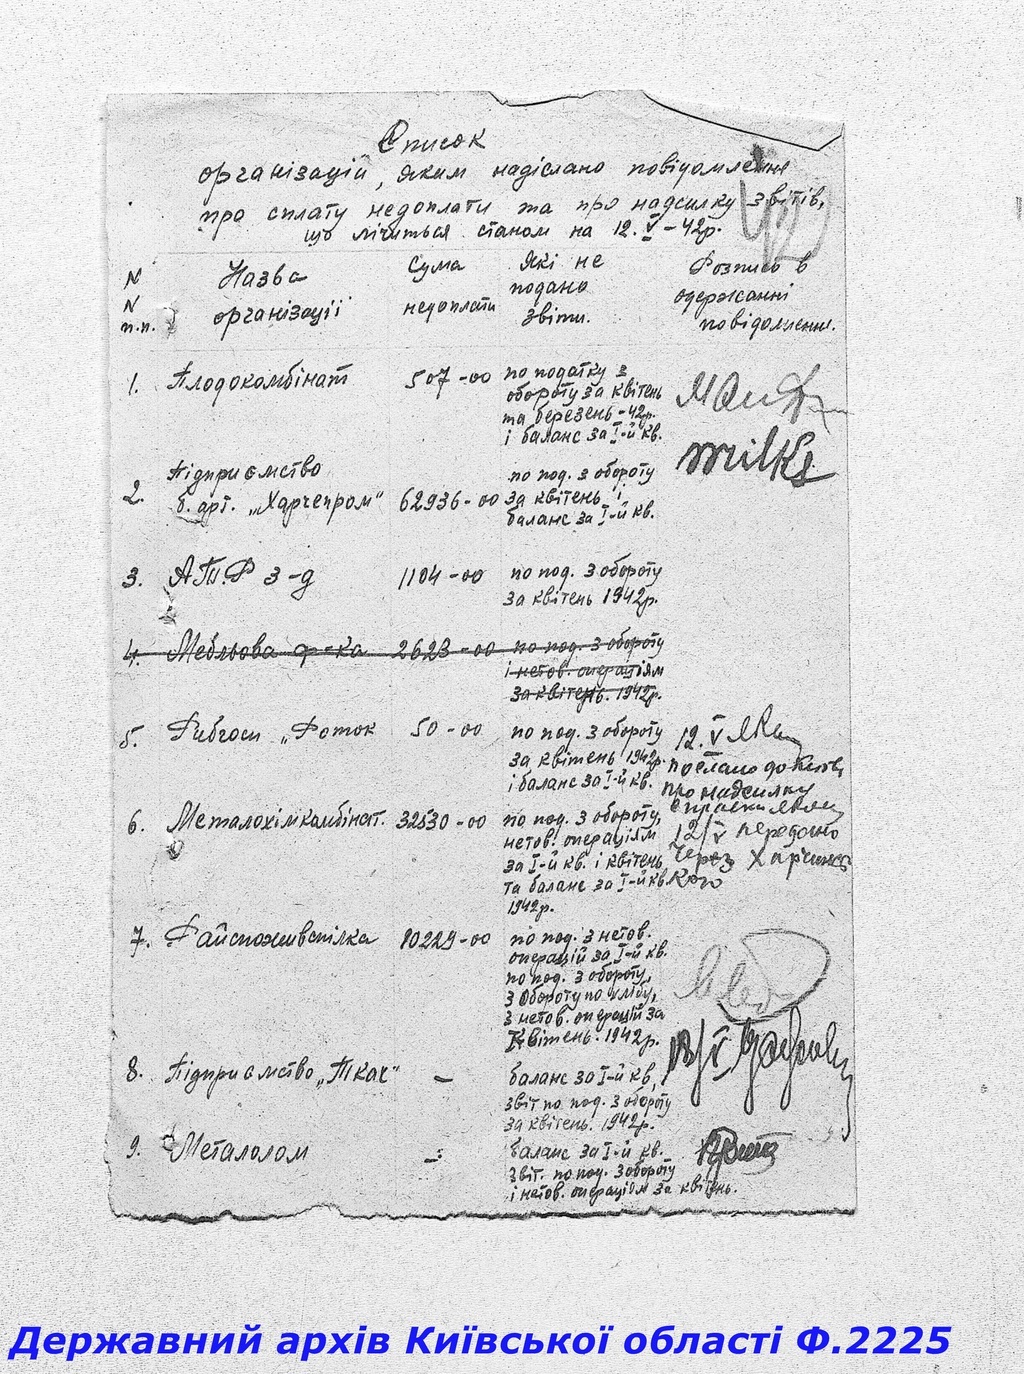 Список
організацій, яким надіслано повідомлення
про сплату недоплати та про надсилку звітів,
що лічиться станом на 12.V-42р.
N N п.п.
Назва організації
Сума недоплати
Які не подано звіти.
Розпись в одержанні повідомлення.
1. Плодокомбінат 507-00 по податку з
обороту за квітень
та березень-42р.
і баланс за I-й кв.
2. Підприємство
б. арт. „Харчепром" 62936-00
по под. з обороту
за квітень і
баланс за I-й кв.
3. АТ.Р з-д 1104-00 по под. з обороту
за квітень 1942р.
4. Мебльова ф-ка 2623-00 по под. з обороту
і нетов. операціям
за квітень. 1942р.
5. Рибгосп „Роток 50-00 по под. з обороту
за квітень 1942р.
і баланс за I-й кв.
12.V
послано до Києва
про надсилку
6. Металохімкомбінат. 32530-00 по под. з обороту,
нетов. операціям
за I-й кв. і квітень
та баланс за I-й кв.
1942р.
12/V передано
через
7. Райспоживспілка 10229-00 по под. з нетов.
операцій за I-й кв.
по под. з обороту,
з обороту по хлібу,
з нетов. операцій за
Квітень. 1942р.
8. Підприємство „Ткач" — баланс за I-й кв,
звіт по под. з обороту
за квітень. 1942р.
9. Металолом — баланс за I-й кв.
звіт. по под. з обороту
і нетов. операціям за квітень.
Державний архів Київської області Ф.2225